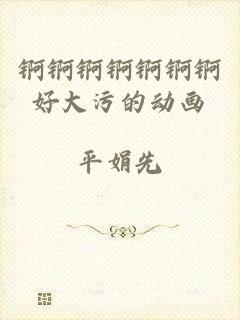 锕锕锕锕锕锕锕
好大污的动画
平娟先